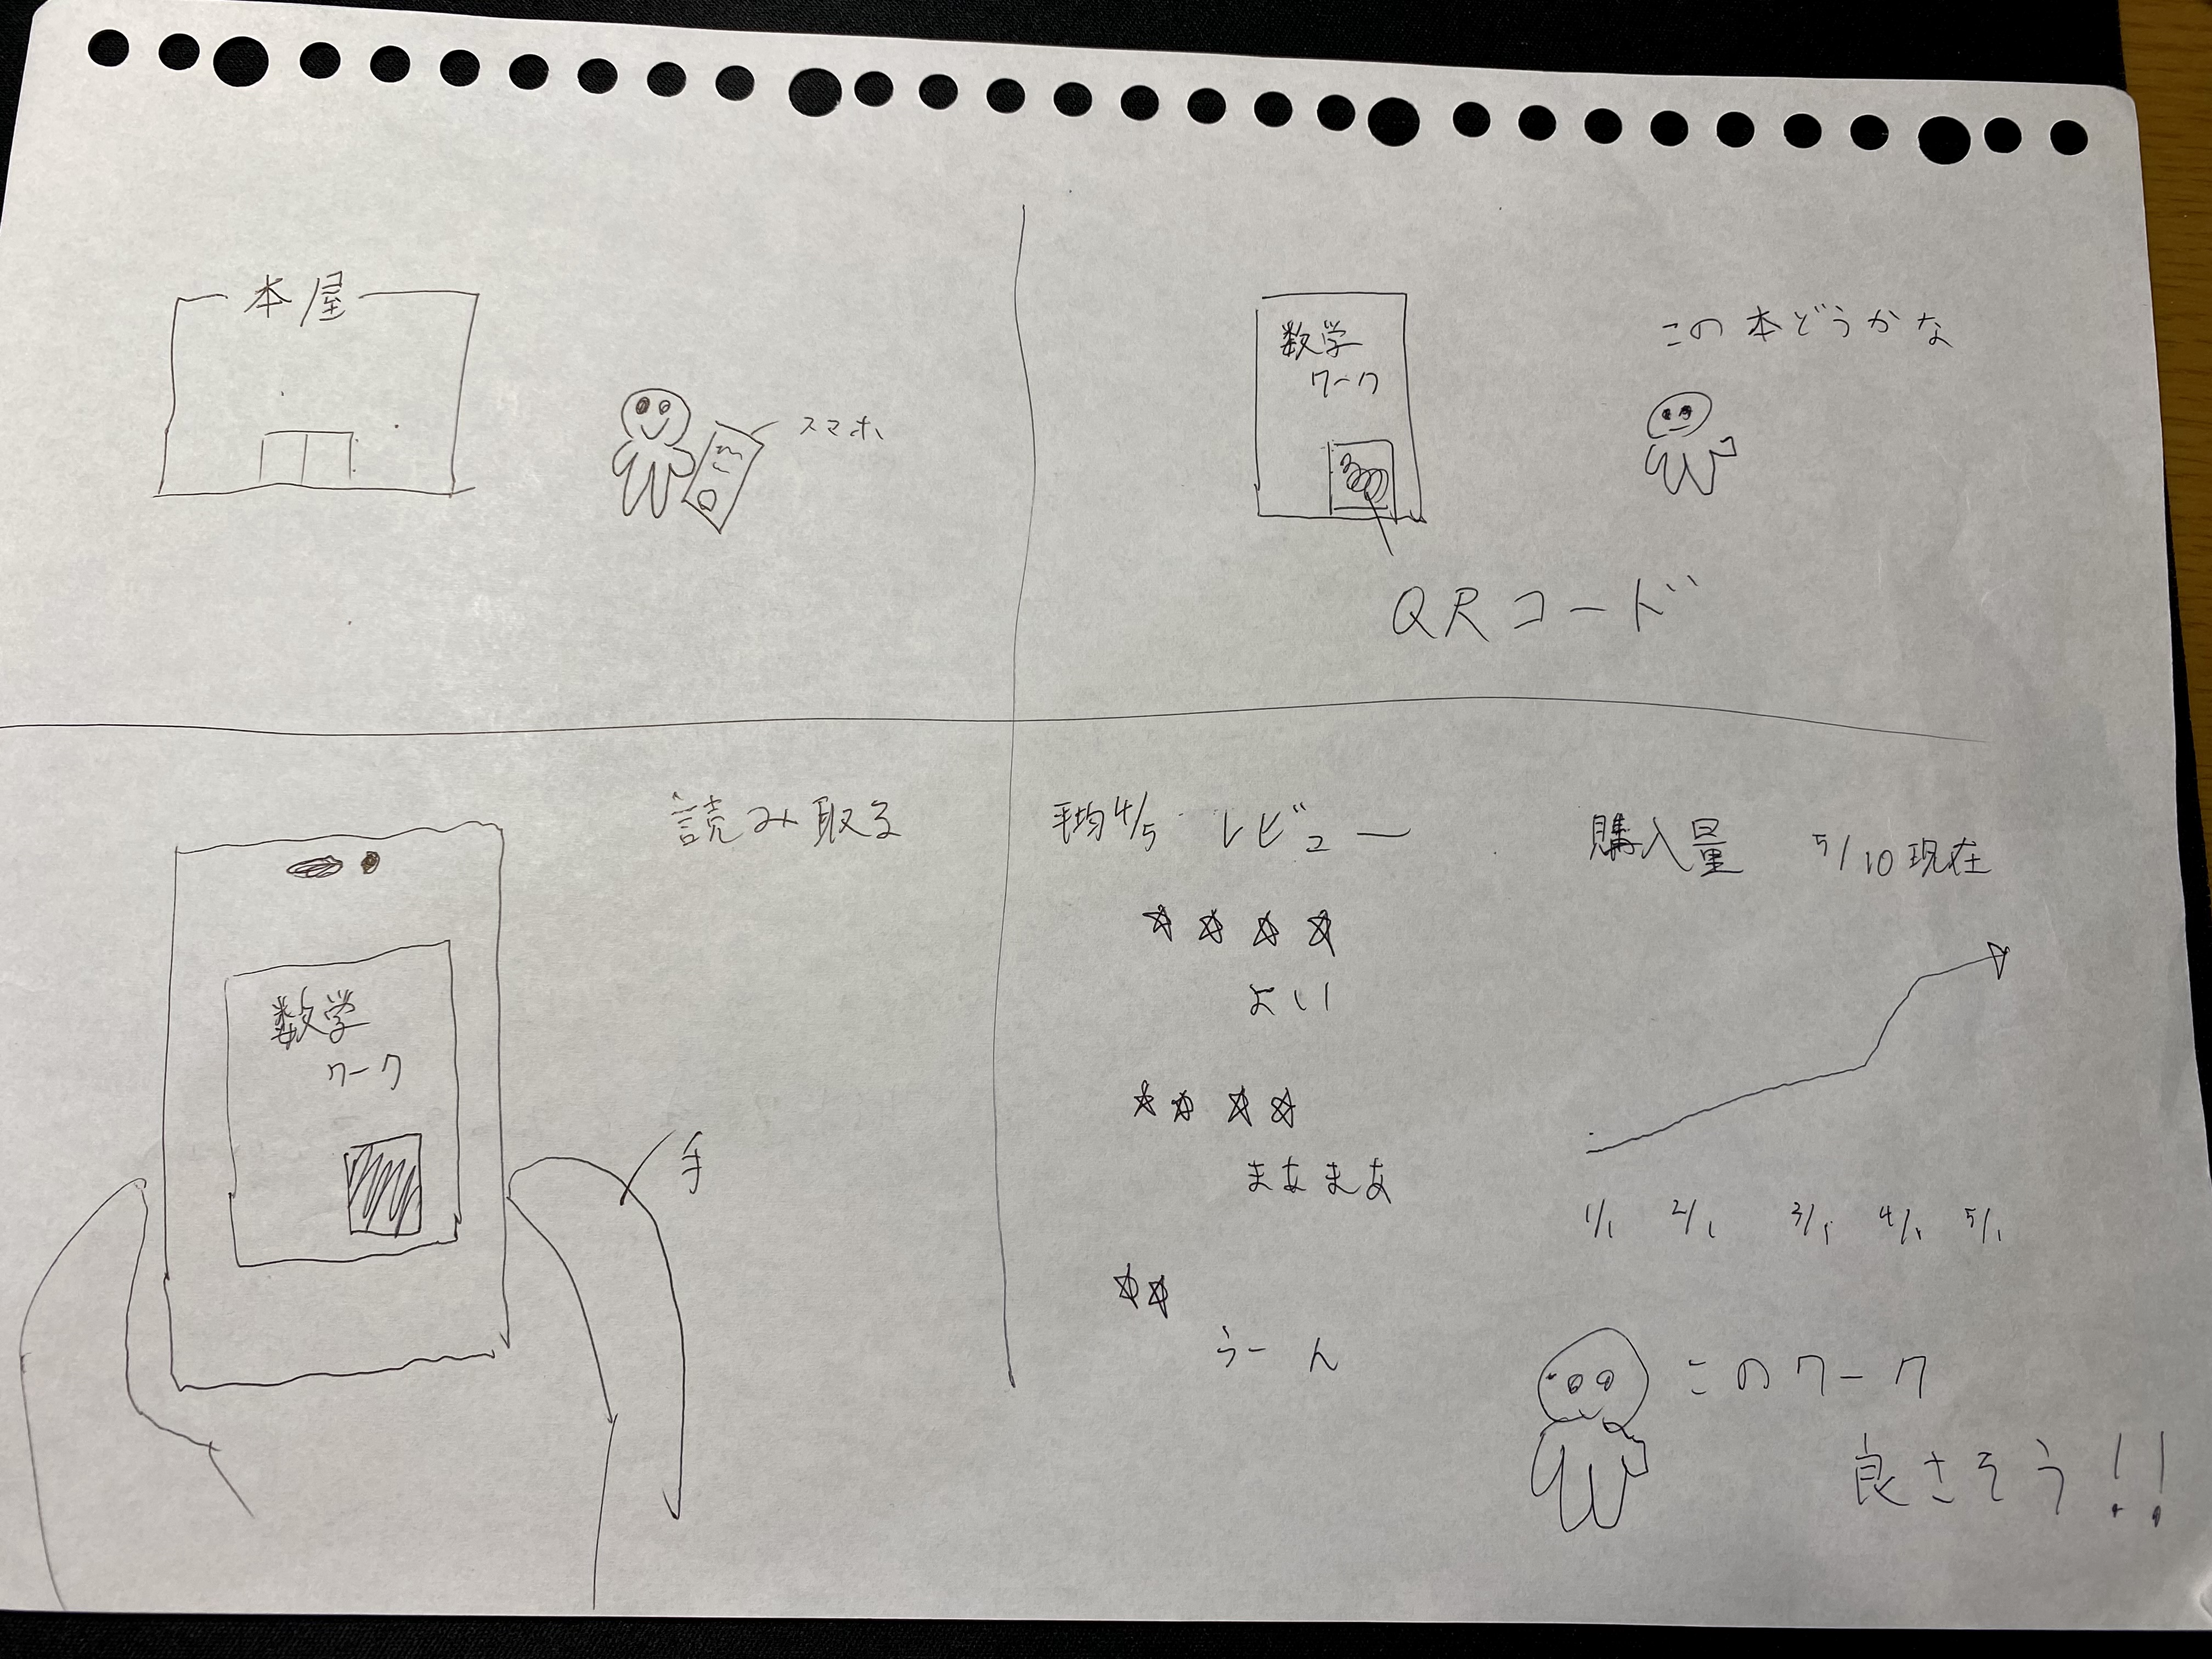 本屋
スマホ
数学
ワーク
この本どうかな
QRコード
読み取る
数学
ワーク
手
平均4/5 レビュー
☆☆☆☆
よい
☆☆☆☆
まあまあ
☆☆
うーん
購入量 5/10現在
1/1 2/1 3/1 4/1 5/1
このワーク
良さそう!!